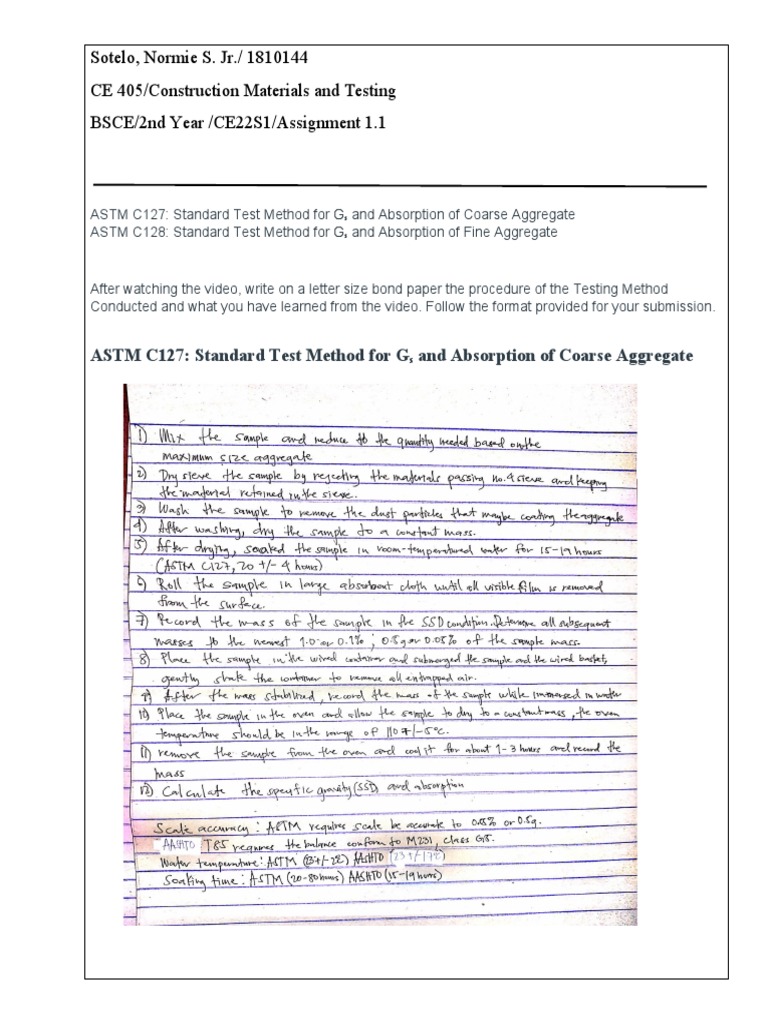 Sotelo, Normie S. Jr./ 1810144
CE 405/Construction Materials and Testing
BSCE/2nd Year /CE22S1/Assignment 1.1
ASTM C127: Standard Test Method for Gs and Absorption of Coarse Aggregate
ASTM C128: Standard Test Method for Gs and Absorption of Fine Aggregate
After watching the video, write on a letter size bond paper the procedure of the Testing Method
Conducted and what you have learned from the video. Follow the format provided for your submission.
ASTM C127: Standard Test Method for Gs and Absorption of Coarse Aggregate
1) Mix the sample and reduce to the quantity needed based on the
maximum size aggregate
2) Dry sieve the sample by rejecting the materials passing no.4 sieve and keeping
the material retained in the sieve.
3) Wash the sample to remove the dust particles that maybe coating the aggregate
4) After washing, dry the sample to a constant mass.
5) After drying, soaked the sample in room-temperatured water for 15-19 hours
(ASTM C127, 20 +/- 4 hours)
6) Roll the sample in large absorbent cloth until all visible film is removed
from the surface.
7) Record the mass of the sample in the SSD condition. Determine all subsequent
masses to the nearest 1.0 or 0.1%; 0.5g or 0.05% of the sample mass.
8) Place the sample in the wired container and submerged the sample and the wired basket,
gently shake the container to remove all entrapped air.
9) After the mass stabilized, record the mass of the sample while immersed in water
10) Place the sample in the oven and allow the sample to dry to a constant mass, the oven
temperature should be in the range of 110 +/-5°C.
11) remove the sample from the oven and cool it for about 1-3 hours and record the
mass
12) Calculate the specific gravity (SSD) and absorption
Scale accuracy: ASTM requires scale be accurate to 0.05% or 0.5g.
AASHTO T85 requires the balance conform to M231, class G5.
Water temperature: ASTM (23+/-2°C) AASHTO (23+/-1.7°C)
Soaking time: ASTM (20-80 hours) AASHTO (15-19 hours)